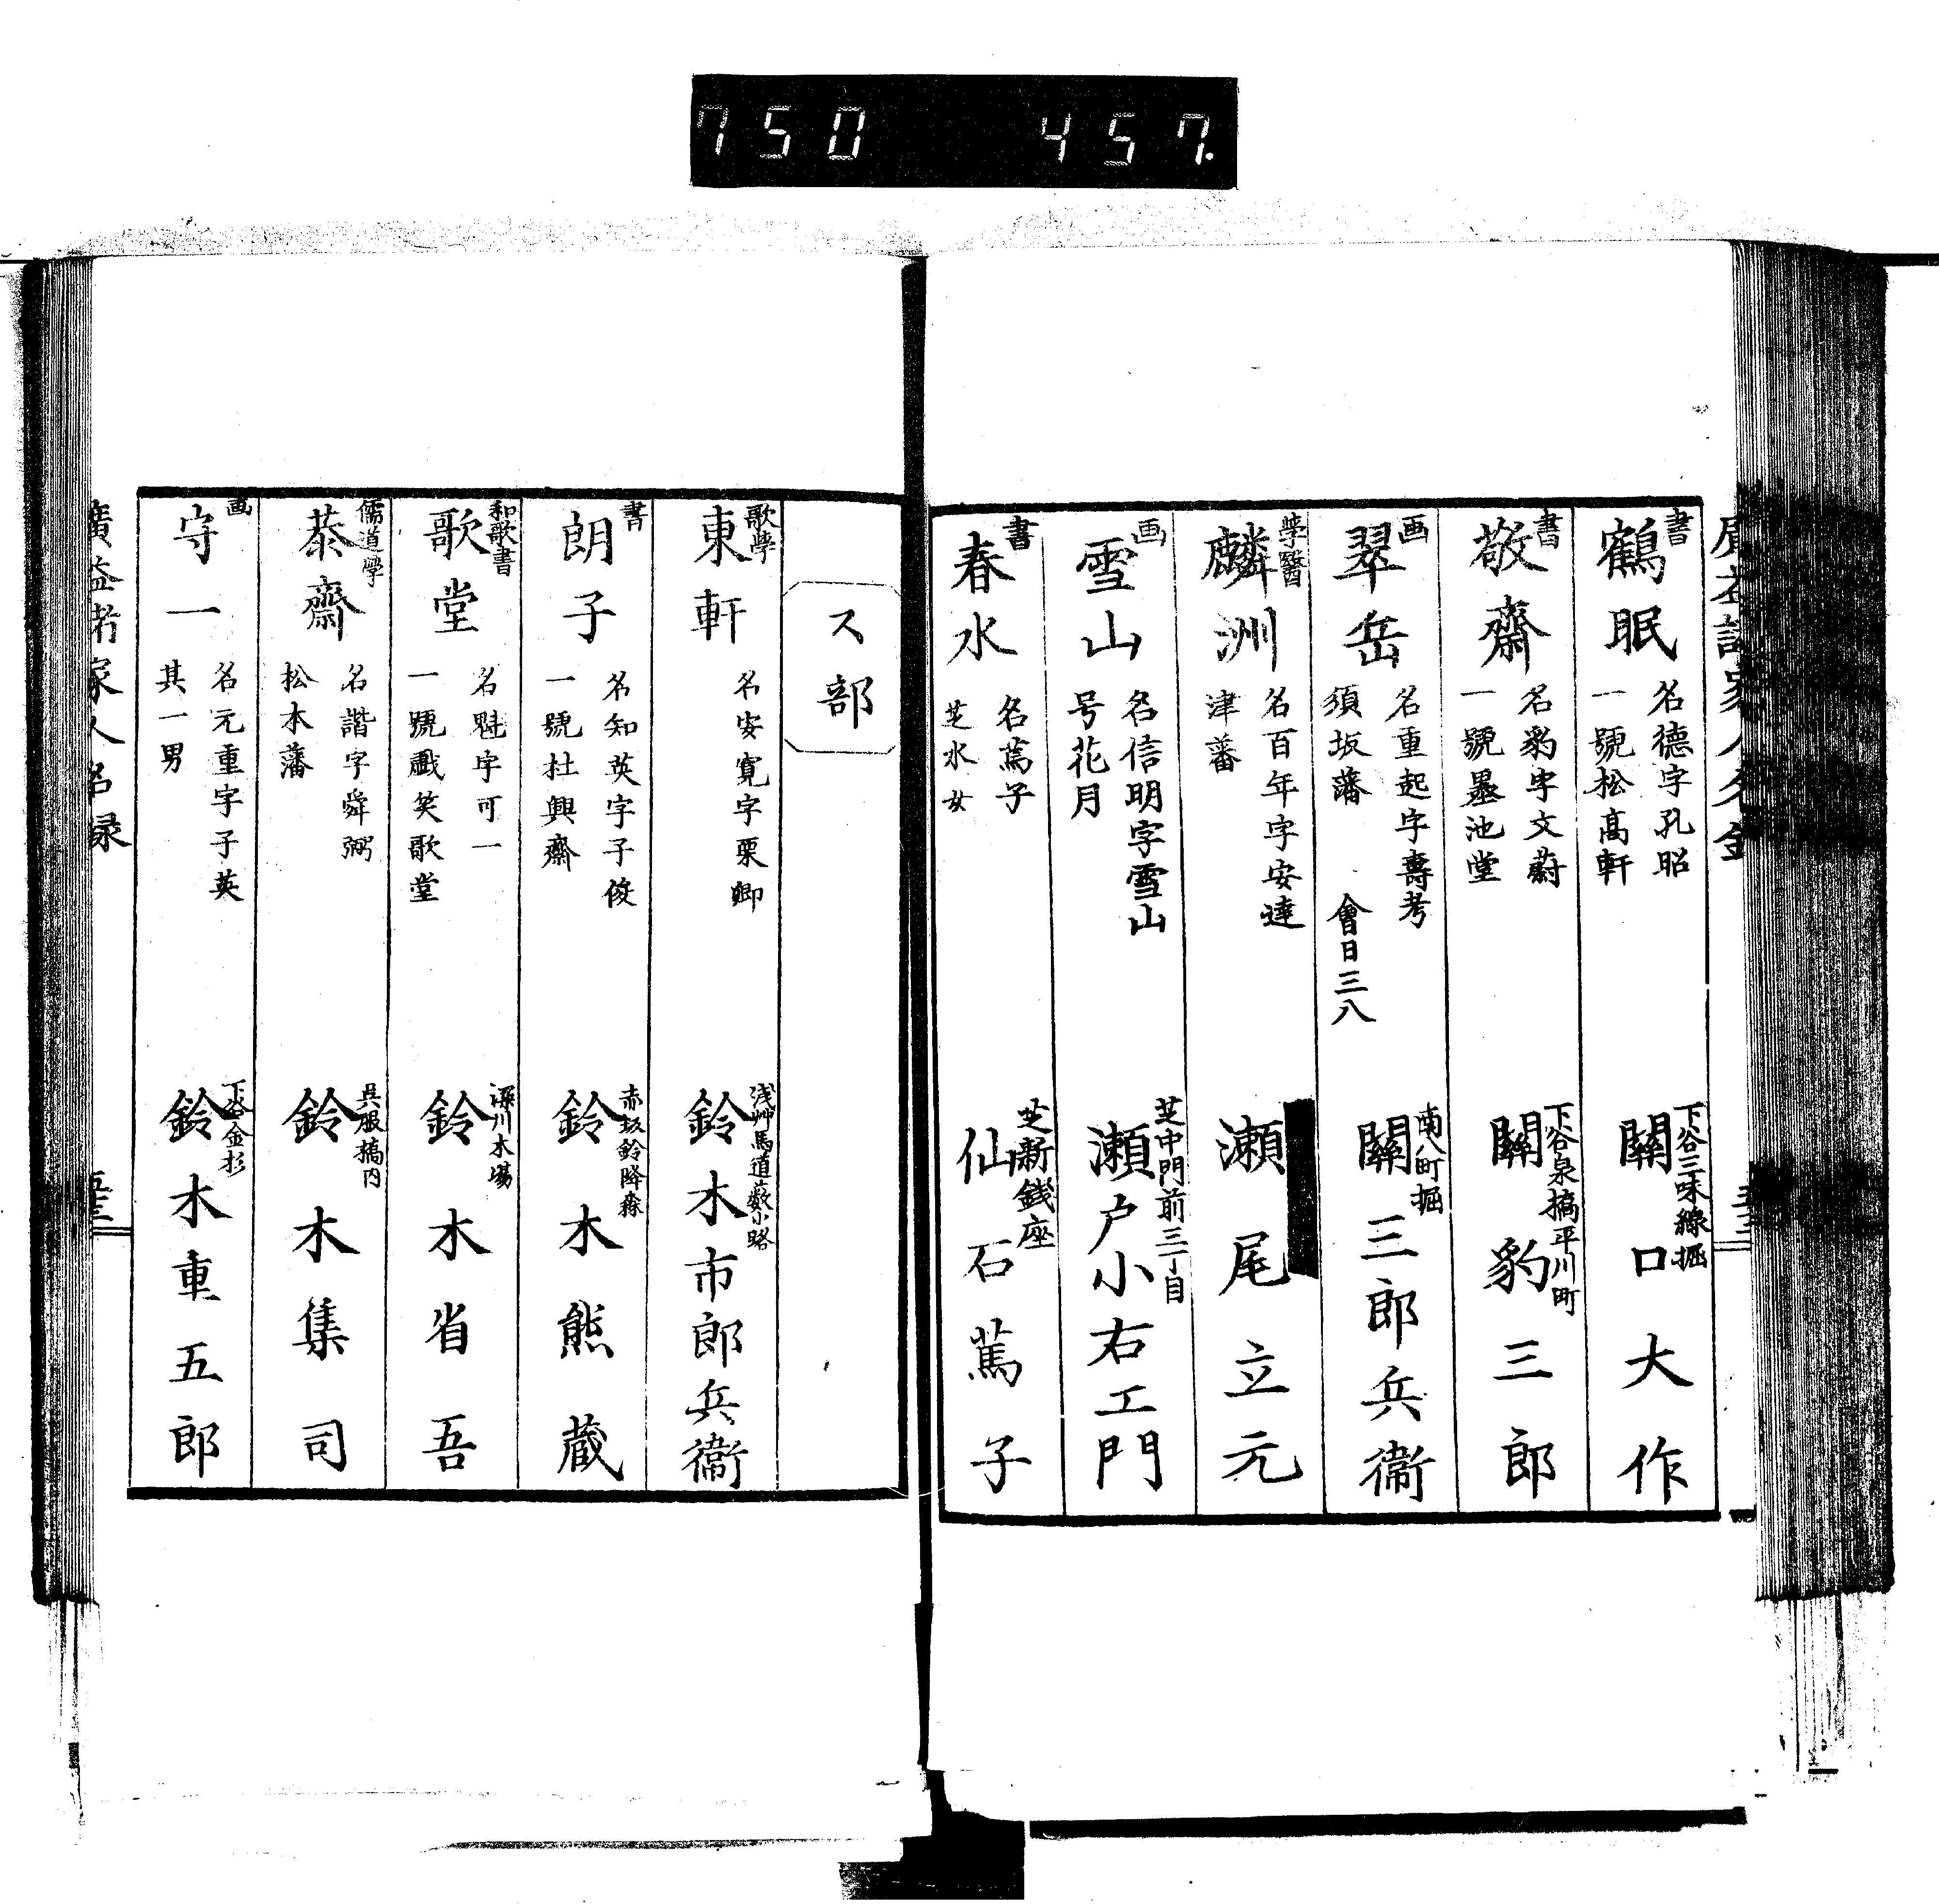 750 457.
書
鶴眠
名德字孔昭
一號松高軒
下谷三味線掘
關口大作
書
敬齋
名豹字文蔚
一號墨池堂
下谷泉橋平川町
關豹三郎
画
翠岳
名重起字壽考
須坂藩 會日三八
南八町掘
關三郎兵衞
學醫
麟洲
名百年字安達
津藩
瀬尾立元
画
雪山
名信明字雪山
号花月
芝中門前三丁目
瀬戸小右エ門
書
春水
名蔫子
芝水女
芝新銭座
仙石蔫子
ス部
歌學
東軒
名安寛字栗卿
浅艸馬道薮小路
鈴木市郎兵衞
書
朗子
名知英字子俊
一號杜興齋
赤坂鈴降森
鈴木熊蔵
和歌書
歌堂
名魁字可一
一號戲笑歌堂
深川木場
鈴木省吾
儒道學
恭齋
名諧字舜弼
松本藩
呉服橋内
鈴木集司
画
守一
名元重字子英
其一男
下谷金杉
鈴木重五郎
廣益諸家人名録
五十三